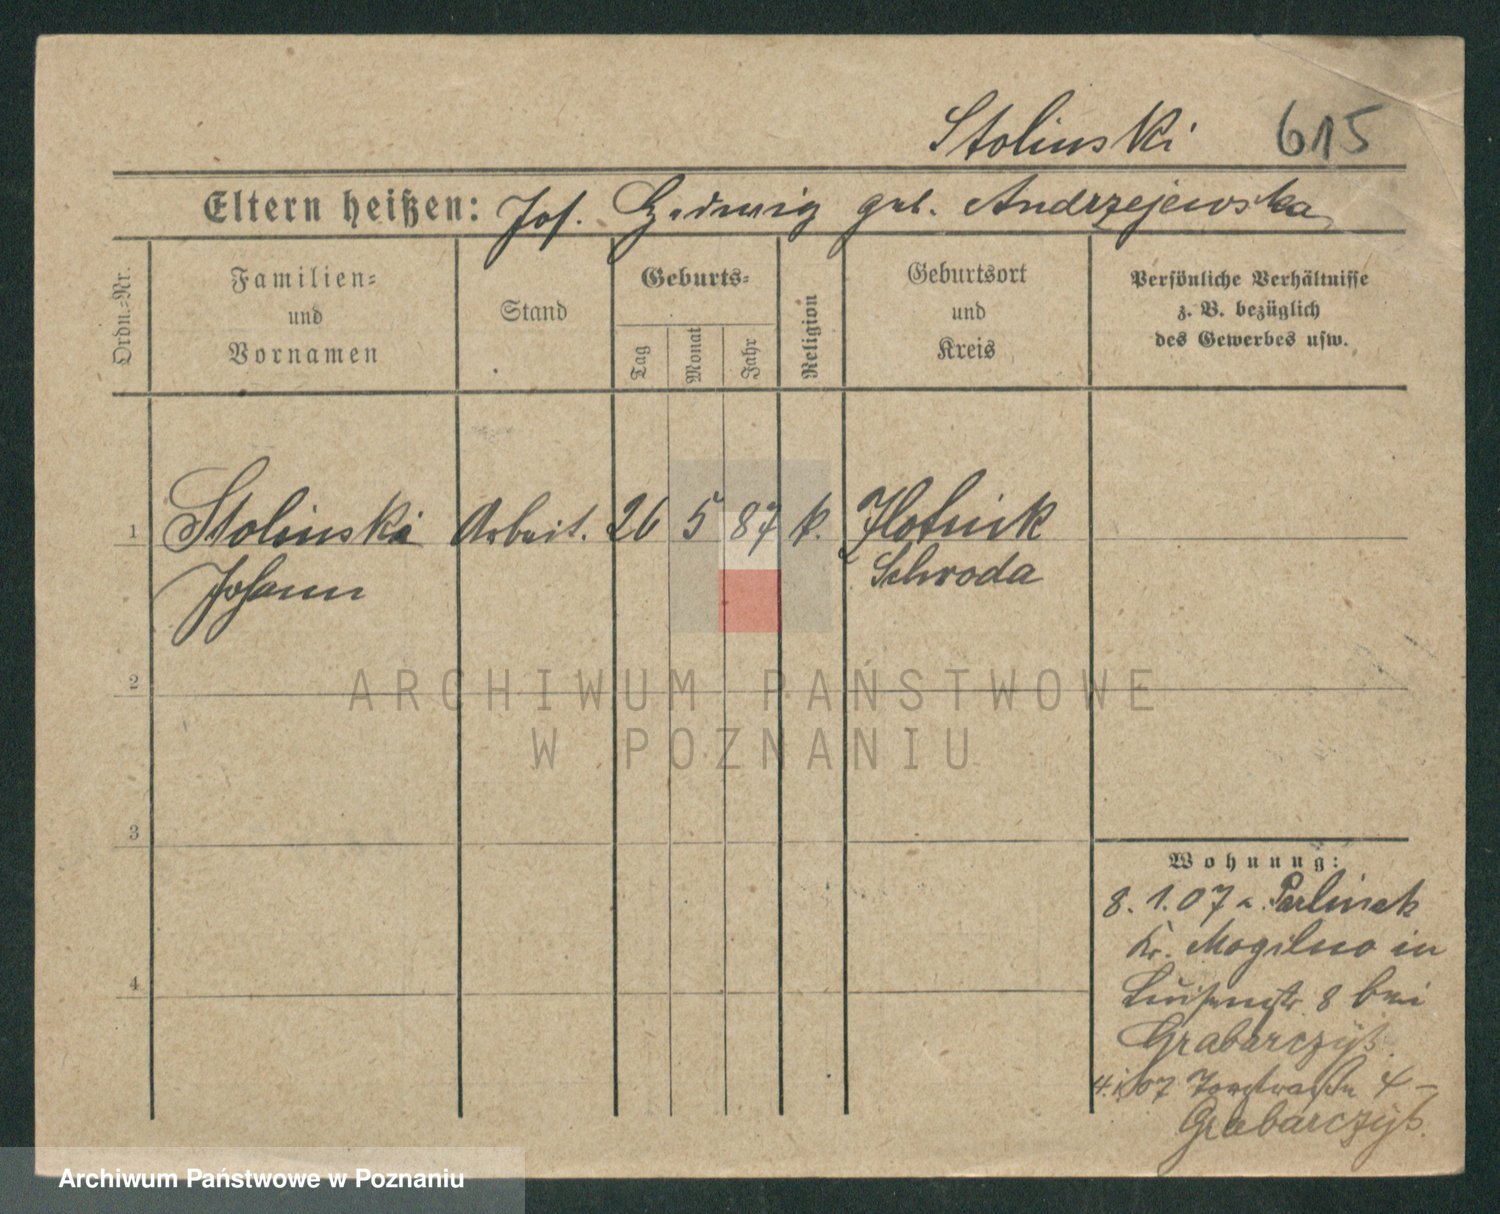 Stolinski 615
Eltern heißen: Jos. Hedwig geb. Andrzejewska
Ordn.=Nr.
Familien=
und
Vornamen
Stand
Geburts=
Tag
Monat
Jahr
Religion
Geburtsort
und
Kreis
Persönliche Verhältnisse
z. B. bezüglich
des Gewerbes usw.
1 Stolinski Arbeit. 26 5 87 k. Zlotnik
Johann Schroda
2
ARCHIWUM PAŃSTWOWE
W POZNANIU
3
Wohnung:
8. 1. 07 Parlinek
Kr. Mogilno in
Luisenstr 8 bei
Grabarczyk.
4
07 4
Grabarczyk.
Archiwum Państwowe w Poznaniu